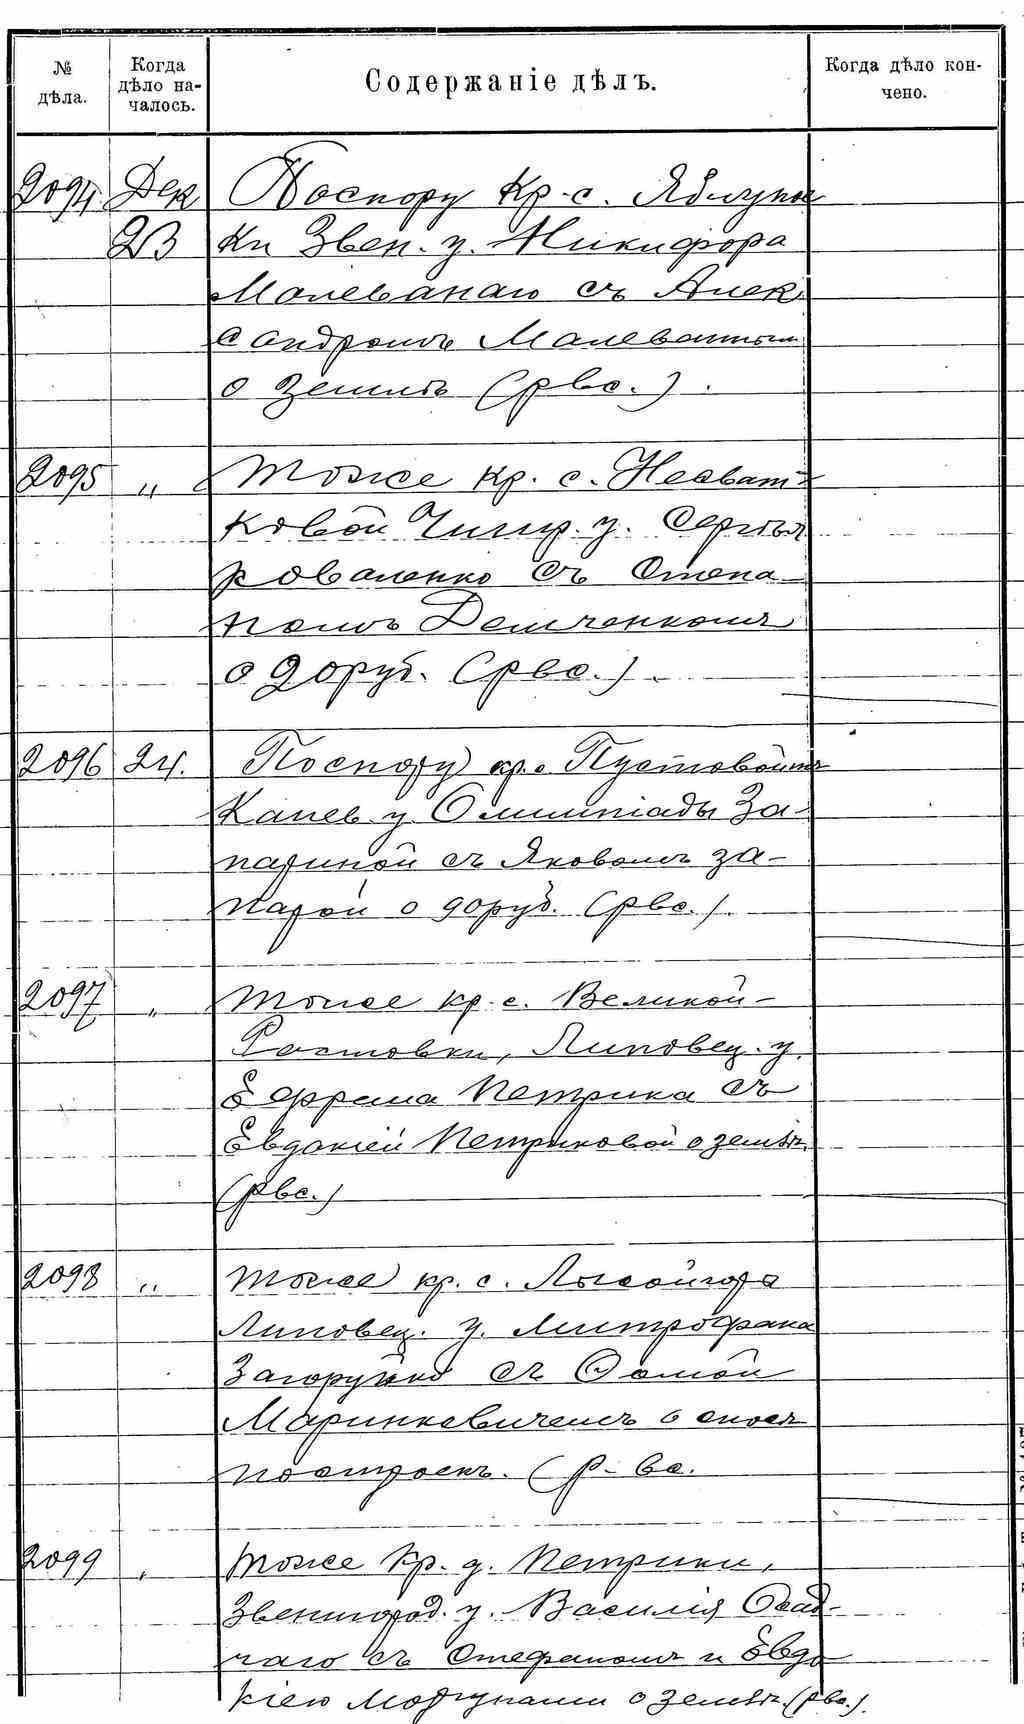 № дѣла. Когда дѣло началось. Содержаніе дѣлъ. Когда дѣло кончено.
2094 Дек По спору кр. с. Яблунов
23 ки Звен. у. Никифора
Малеванаго съ Алек
сандромъ Малеванным
о землѣ (рвс.).
2095 „ Тоже кр. с. Несват-
ковой Чигир. у. Сергѣя
Коваленко съ Степа-
номъ Демченкомъ
о 2 оруб. (рвс.)
2096 24. По спору кр. Пустовойтъ
Канев. у. Олимпіады За-
париной съ Яковомъ За-
парой о 9 оруб. (рвс.).
2097 „ Тоже кр. с. Великой-
Ростовки, Липовец. у.
Ефрема Петрика съ
Евдокіей Петриковой о землѣ.
(рвс.)
2098 „ Тоже кр. с. Лысойгора
Липовец. у. Митрофана
Загоруйко съ Фомой
Маринкевичемъ о сносѣ
построекъ. (р-вс.
2099 „ Тоже кр. д. Петрики,
Звенигород. у. Василія Осад-
чаго съ Стефаномъ и Евдо
кіею Моргунами о землѣ. (рвс.).